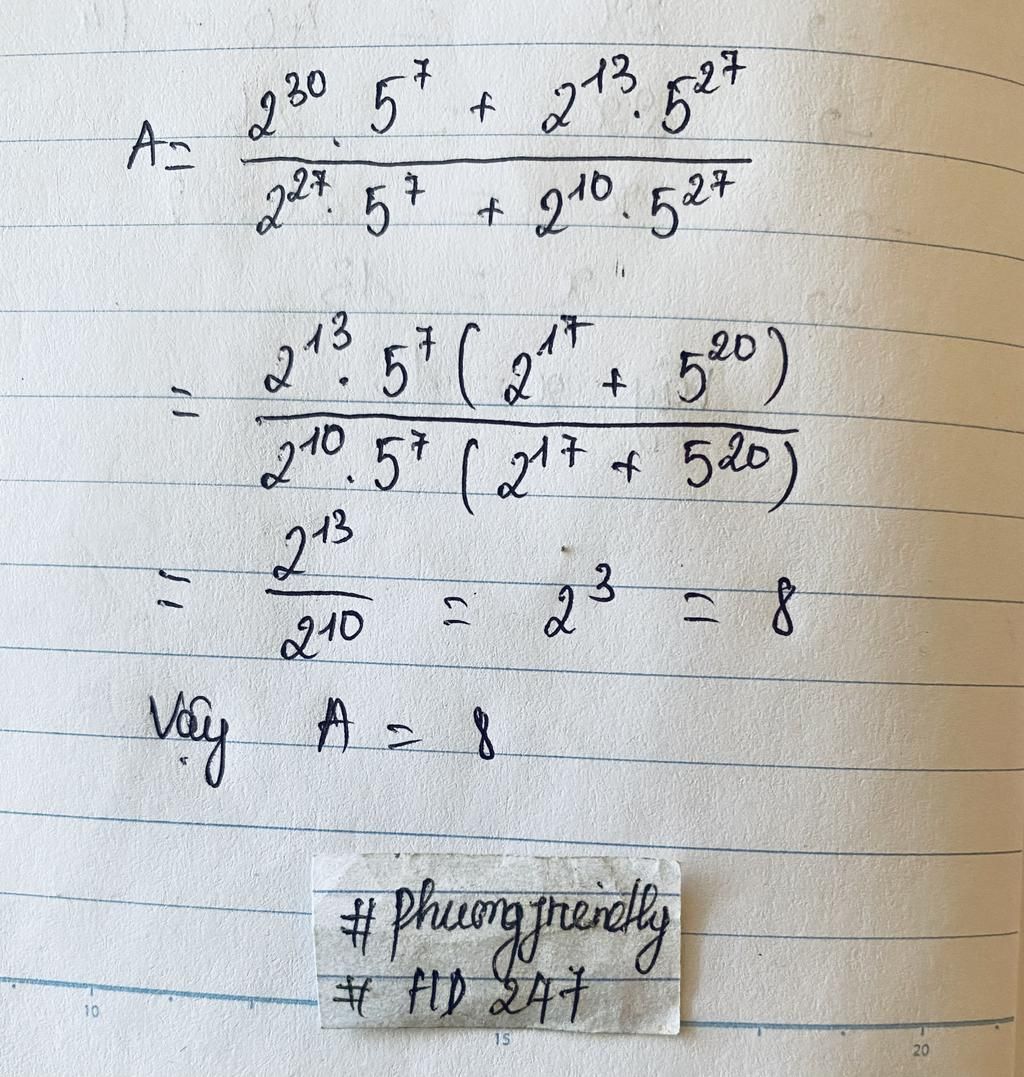 A = \frac{2^{30} . 5^7 + 2^{13} . 5^{27}}{2^{27} . 5^7 + 2^{10} . 5^{27}}
= \frac{2^{13} . 5^7 (2^{17} + 5^{20})}{2^{10} . 5^7 (2^{17} + 5^{20})}
= \frac{2^{13}}{2^{10}} = 2^3 = 8
Vậy A = 8
# phuongfriendly
# HD 247
10 15 20